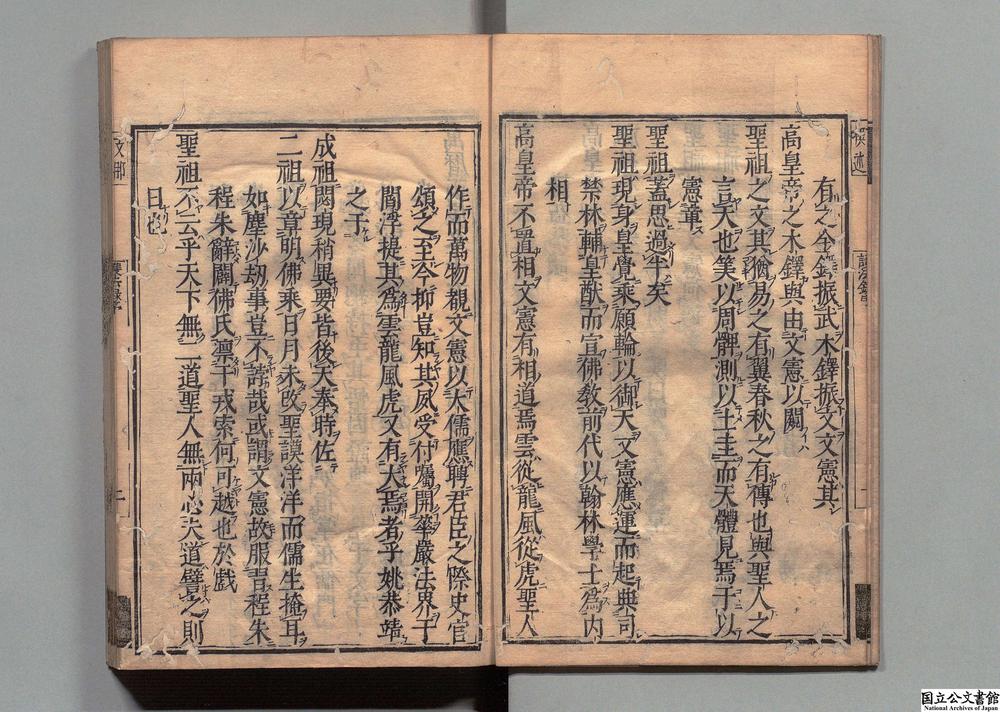 有之金鐸振武木鐸振文文憲其
高皇帝之木鐸與由文憲以闚
聖祖之文其猶易之有翼春秋之有傳也與聖人之
言天也笑以周髀測以土圭而天體見焉于以
憲章
聖祖蓋思過半矣
聖祖現身皇覺乘願輪以御天文憲應運而起典司
禁林輔皇猷而宣佛教前代以翰林學士為内
相
高皇帝不置相文憲有相道焉雲從龍風從虎聖人
作而萬物覩文憲以大儒應聘君臣之際史官
頌之至今抑豈知其夙受付囑開華嚴法界于
閻浮提其為雲龍風虎又有大焉者乎姚恭靖
之于
成祖閟現稍異要皆後天奉時佐
二祖以章明佛乘日月未改聖謨洋洋而儒生掩耳
如塵沙劫事豈不誖哉或謂文憲故服習程朱
程朱辭闢佛氏凛于戎索何可越也於戲
聖祖不云乎天下無二道聖人無兩心夫道譬之則
日也
国立公文書館
National Archives of Japan